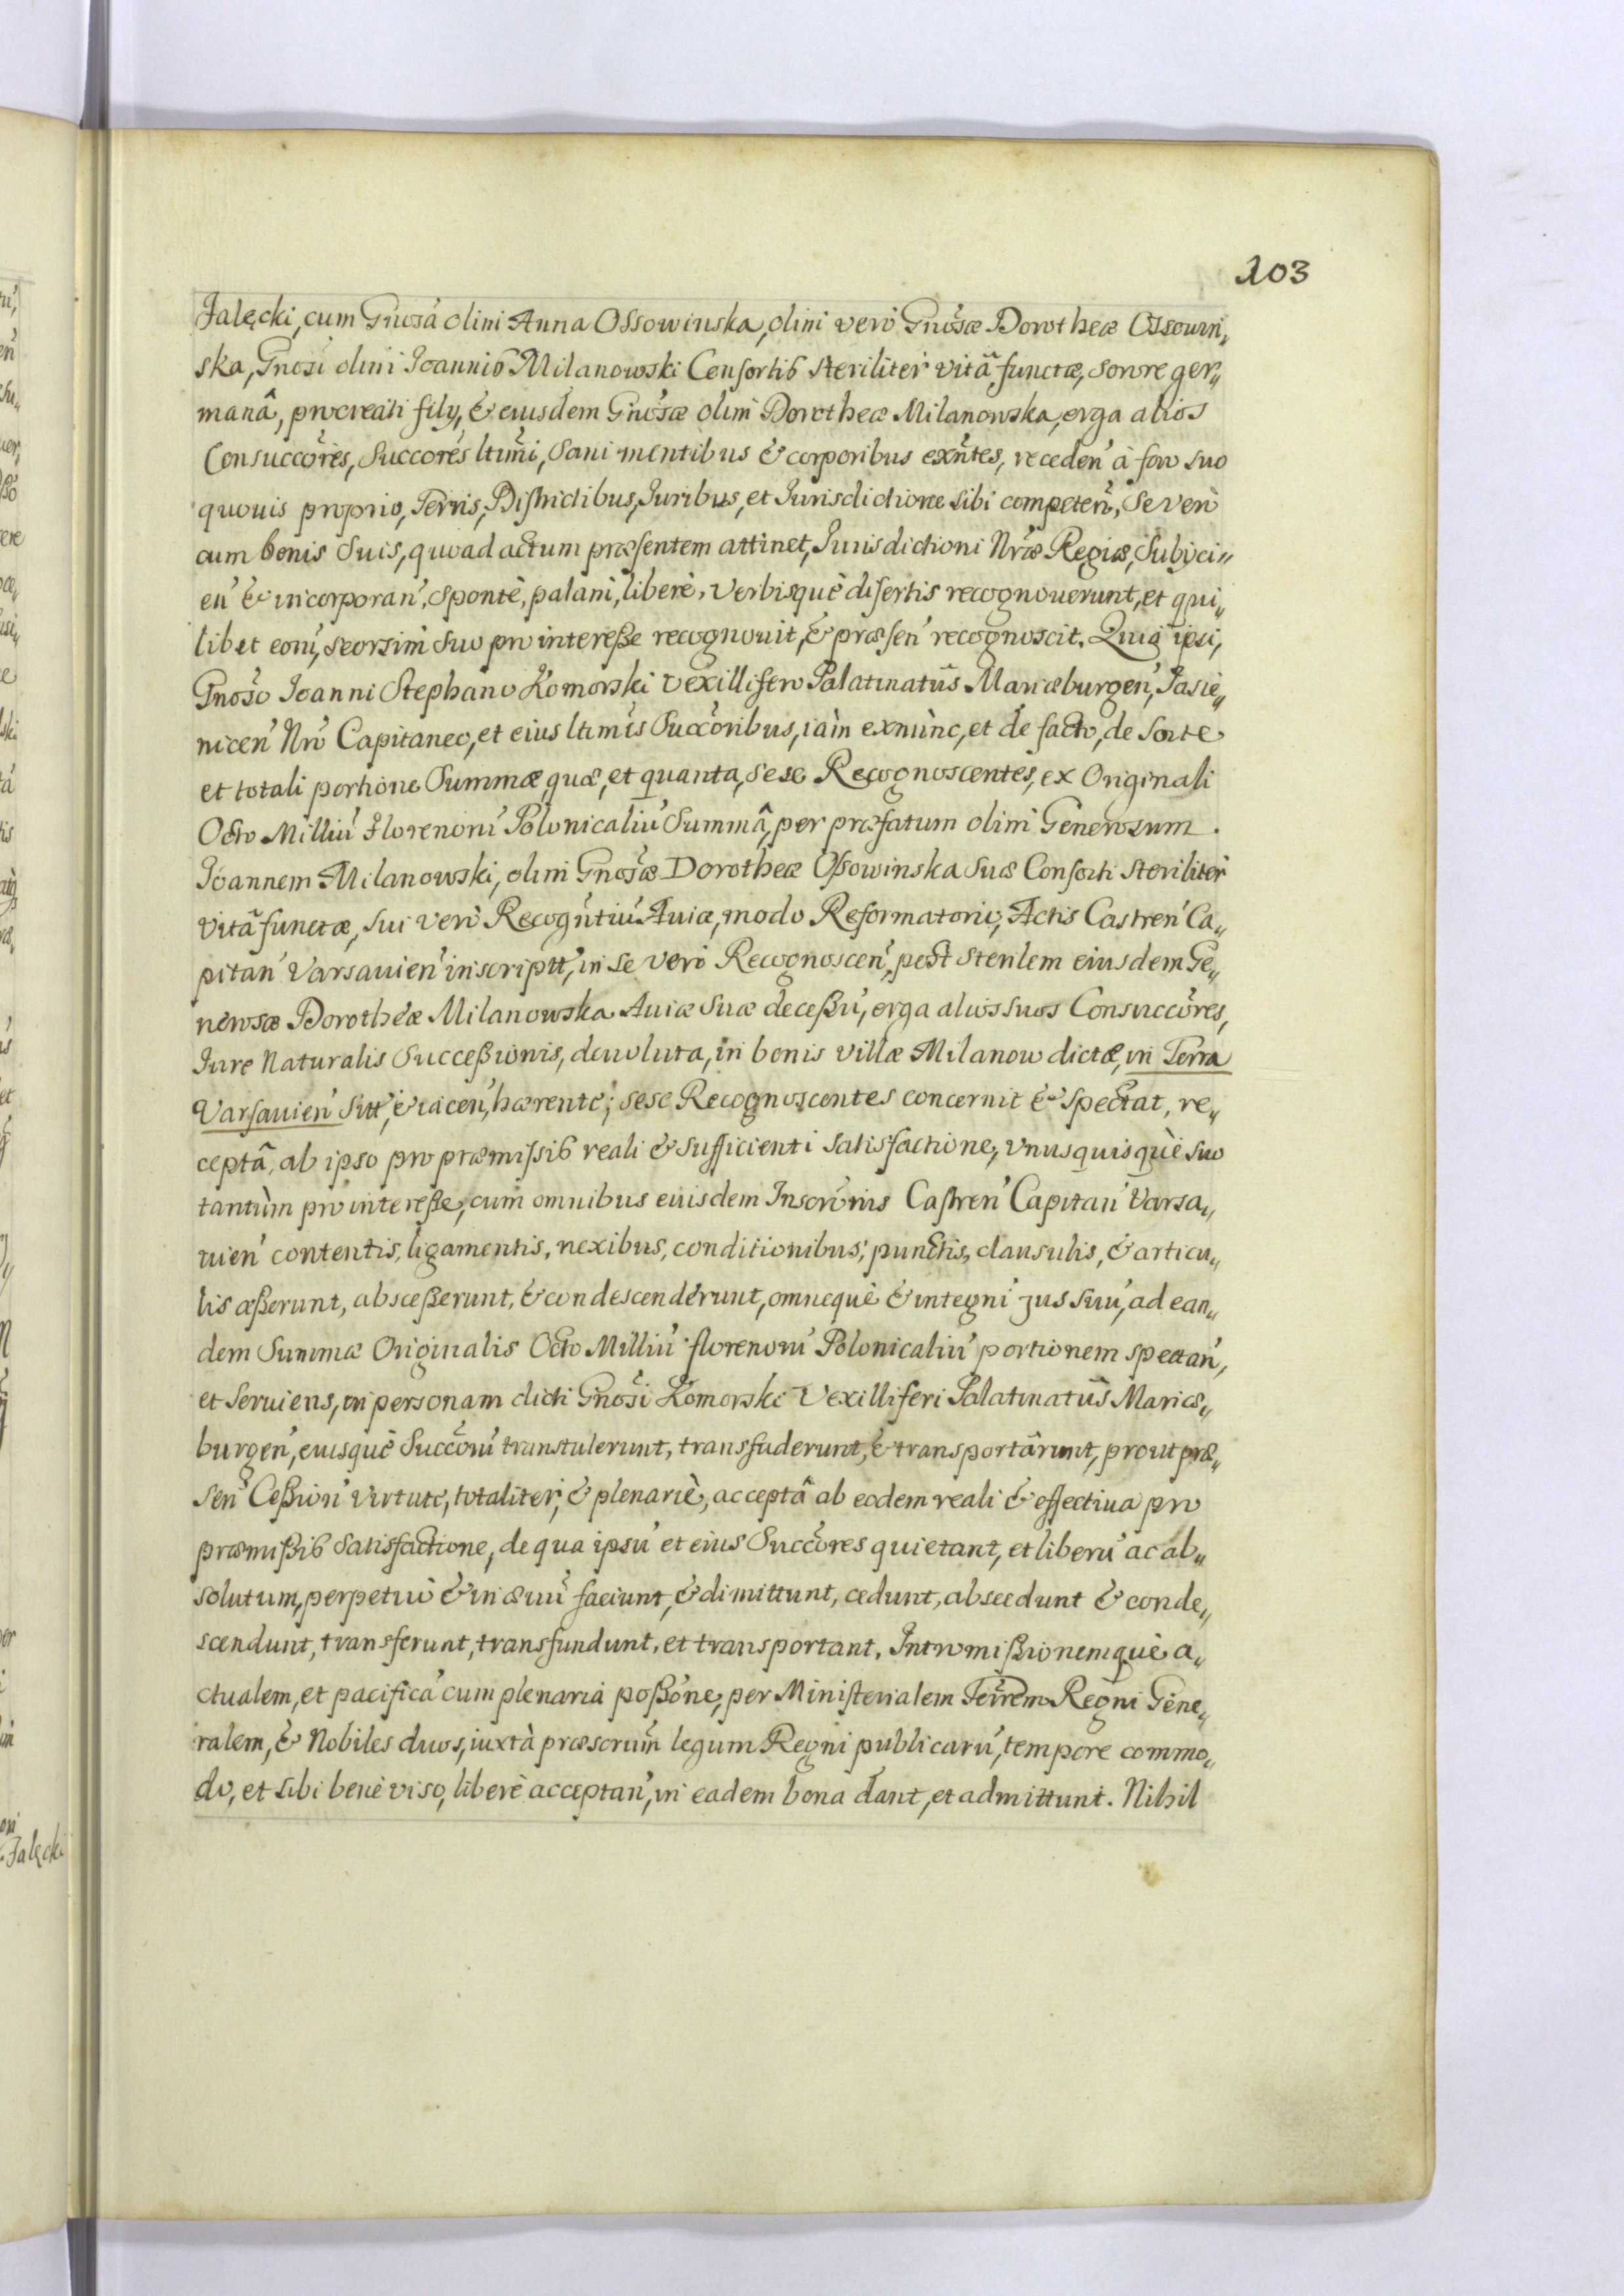 103
Jalęcki, cum Gnosa olim Anna Ossowinska, olim vero Gnosæ Dorotheæ Ossowin„
ska, Gnosi olim Joannis Milanowski Consortis steriliter vitâ functæ, sorore ger„
manâ, procreati filij, & eiusdem Gnosæ olim Dorotheæ Milanowska, erga alios
Consuccores, Succores ltimi, Sani mentibus & corporibus exntes, receden' à foro suo
quouis proprio, Terris, Districtibus, Juribus, et Jurisdictione sibi competen', Se vero
cum bonis Suis, quoad actum præsentem attinet, Jurisdictioni Nræ Regiæ, Subijci„
en' & incorporan', Sponte, palam, liberè, Verbisquè disertis recognouerunt, et qui„
libet eoru', seorsim suo pro interesse recognouit, & præsen' recognoscit. Quia ipsi,
Gnoso Joanni Stephano Komorski Vexillifero Palatinatûs Mariæburgen', Jasie„
nicen' Nro Capitaneo, et eius ltimis Succoribus, iàm exnùnc, et de facto, de Sorte
et totali portione Summæ, quæ, et quanta, sese Recognoscentes, ex Originali
Octo Milliu' Florenoru' Polonicaliu' Summâ, per præfatum olim Generosum
Joannem Milanowski, olim Gnosæ Dorotheæ Ossowinska Suæ Consorti Steriliter
Vitâ functæ, Sui verò Recogntiu' Auiæ, modo Reformatorio, Actis Castren' Ca„
pitan' Varsauien' inscriptt', in se verò Recognoscen', post sterilem eiusdem Ge„
nerosæ Dorotheæ Milanowska Auiæ Suæ decessu', erga alios suos Consuccores,
Jure Naturalis Successionis, deuoluta, in bonis villæ Milanow dictæ, in Terra
Varsauien' Sitt', & iacen', hærente; sese Recognoscentes concernit & Spectat, re„
ceptâ, ab ipso pro præmissis reali & sufficienti Satisfactione, vnusquisquè suo
tantùm pro interesse, cum omnibus eiusdem Inscronis Castren' Capitan' Varsa„
uien' contentis, ligamentis, nexibus, conditionibus, punctis, clausulis, & articu„
lis cesserunt, abscesserunt, & condescenderunt, omnequè & integru' jus suu', ad ean„
dem Summæ Originalis Octo Milliu' florenoru' Polonicaliu' portionem spectan',
et Seruiens, in personam dicti Gnosi Komorski Vexilliferi Palatinatûs Mariæ„
burgen', eiusquè Succoru' transtulerunt, transfuderunt, & transportârunt, prout præ„
sen' Cession' Virtute, totaliter, & plenariè, acceptâ ab eodem reali & effectiua pro
præmissis Satisfactione, de qua ipsu' et eius Succores quietant, et liberu' ac ab„
solutum, perpetuò & in æuu' faciunt, & dimittunt, cedunt, abscedunt & conde„
scendunt, transferunt, transfundunt, et transportant. Intromissionemquè a„
ctualem, et pacifica' cum plenaria possone, per Ministerialem Terrem Regni Gene„
ralem, & Nobiles duos, iuxtà præscrium legum Regni publicaru', tempore commo„
do, et sibi benè viso, liberè acceptan', in eadem bona dant, et admittunt. Nihil
Jalęcki